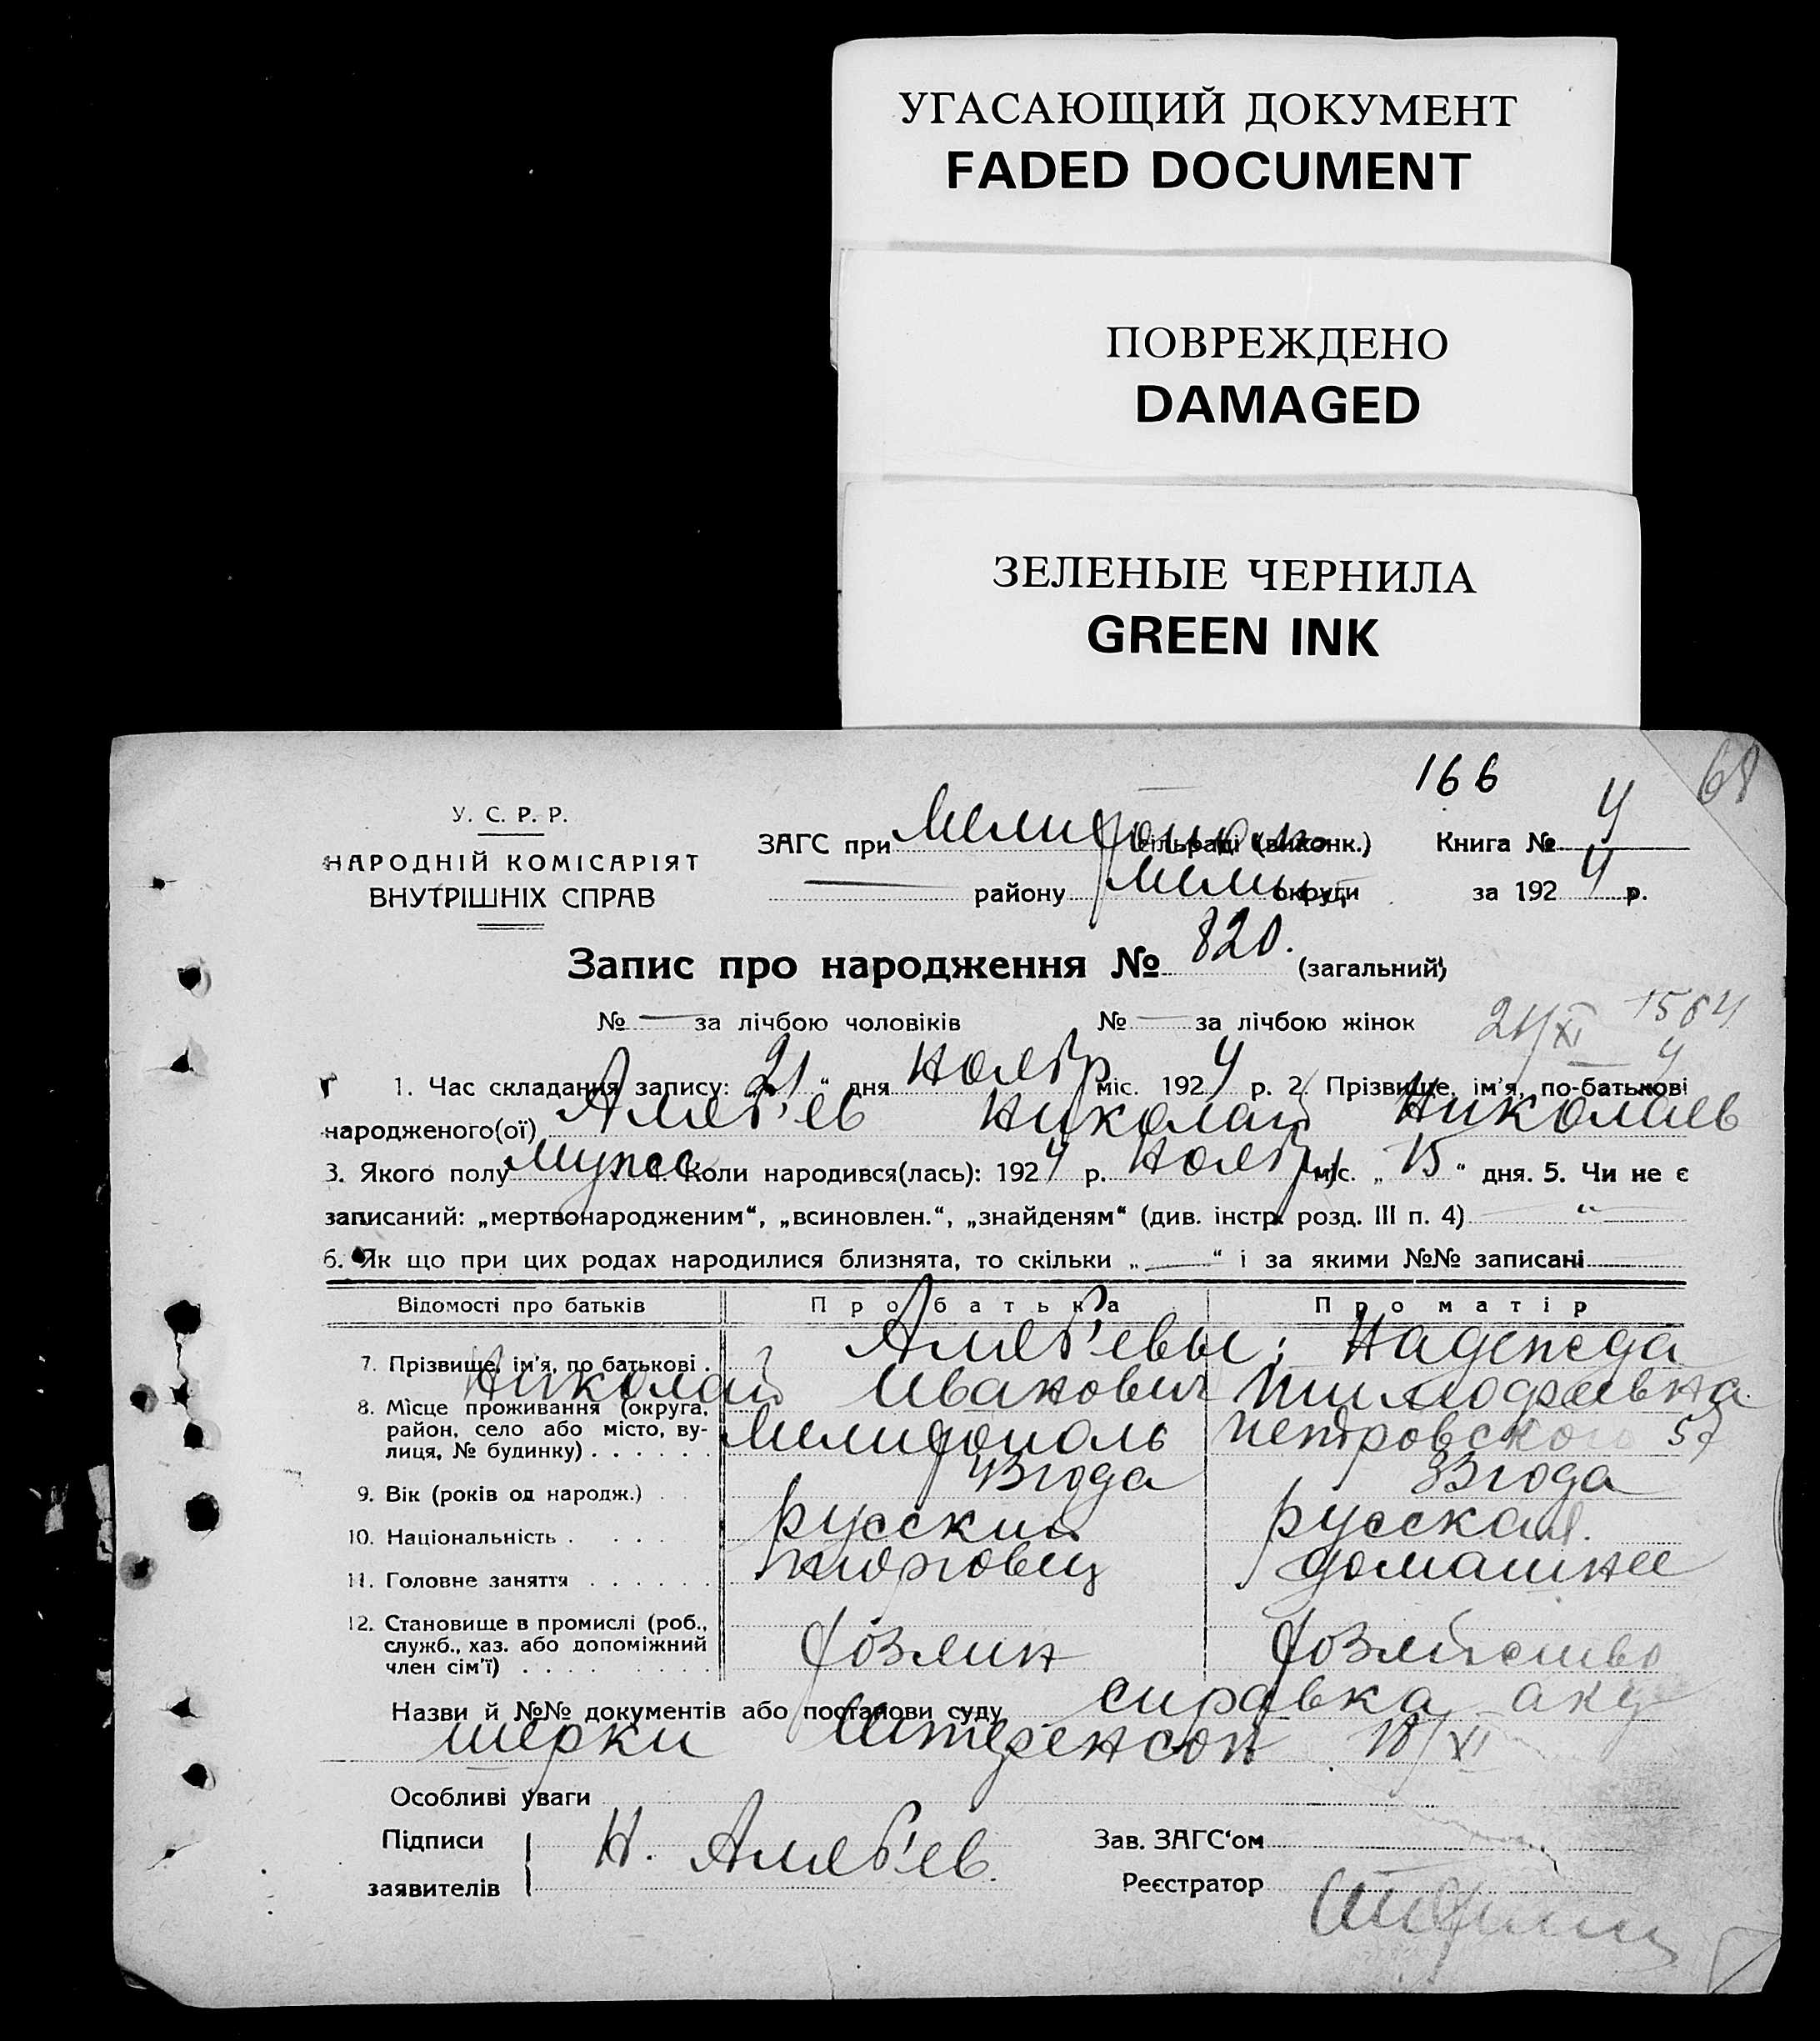 УГАСАЮЩИЙ ДОКУМЕНТ
FADED DOCUMENT
ПОВРЕЖДЕНО
DAMAGED
ЗЕЛЕНЫЕ ЧЕРНИЛА
GREEN INK
166
68
У. С. Р. Р.
НАРОДНІЙ КОМІСАРІЯТ
ВНУТРІШНІХ СПРАВ
ЗАГС при Мелитопольс сільраді (виконк.) Книга № 4
— району Мелит округи за 1924 р.
Запис про народження № 820. (загальний)
№ — за лічбою чоловіків № — за лічбою жінок
21/XI 1564
1. Час складання запису: „21“ дня Ноябр міс. 1924 р. 2. Прізвище, ім'я, по-батькові
народженого(ої) Аляб'ев Николай Николаев
3. Якого полу мужс 4. Коли народився(лась): 1924 р. Ноября міс. „15“ дня. 5. Чи не є
записаний: „мертвонародженим“, „всиновлен.“, „знайденям“ (див. інстр. розд. III п. 4) — “ —
6. Як що при цих родах народилися близнята, то скільки „—“ і за якими №№ записані
Відомості про батьків Про батька Про матір
7. Прізвище, ім'я, по батькові . Аляб'евы; Надежда
Николай Иванович Тимофеевна
8. Місце проживання (округа,
район, село або місто, ву-
лиця, № будинку) . . . . . . Мелитополь Петровского 57
9. Вік (років од народж.) . . 43 года 33 года
10. Національність . . . . русский русская.
11. Головне заняття . . . . . . торговец домашнее
12. Становище в промислі (роб.,
служб., хаз. або допоміжний
член сім'ї) . . . . . . . . . хозяин хозяйство
Назви й №№ документів або постанови суду справка аку
шерки Штеренсон 18/XI
Особливі уваги
Підписи
заявителів Н. Аляб'ев.
Зав. ЗАГС'ом
Реєстратор